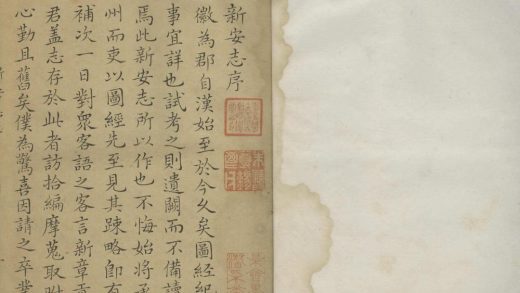 新安志序
徽為郡自漢始至於今久矣圖經紀
事宜詳也試考之則遺闕而不備讀
焉此新安志所以作也不悔始將承
州而吏以圖經先至見其疎略即有
補次一日對衆客語之客言新章貢
君盖志存於此者訪拾編摩蒐取
心勤且舊矣僕為驚喜因請之卒業